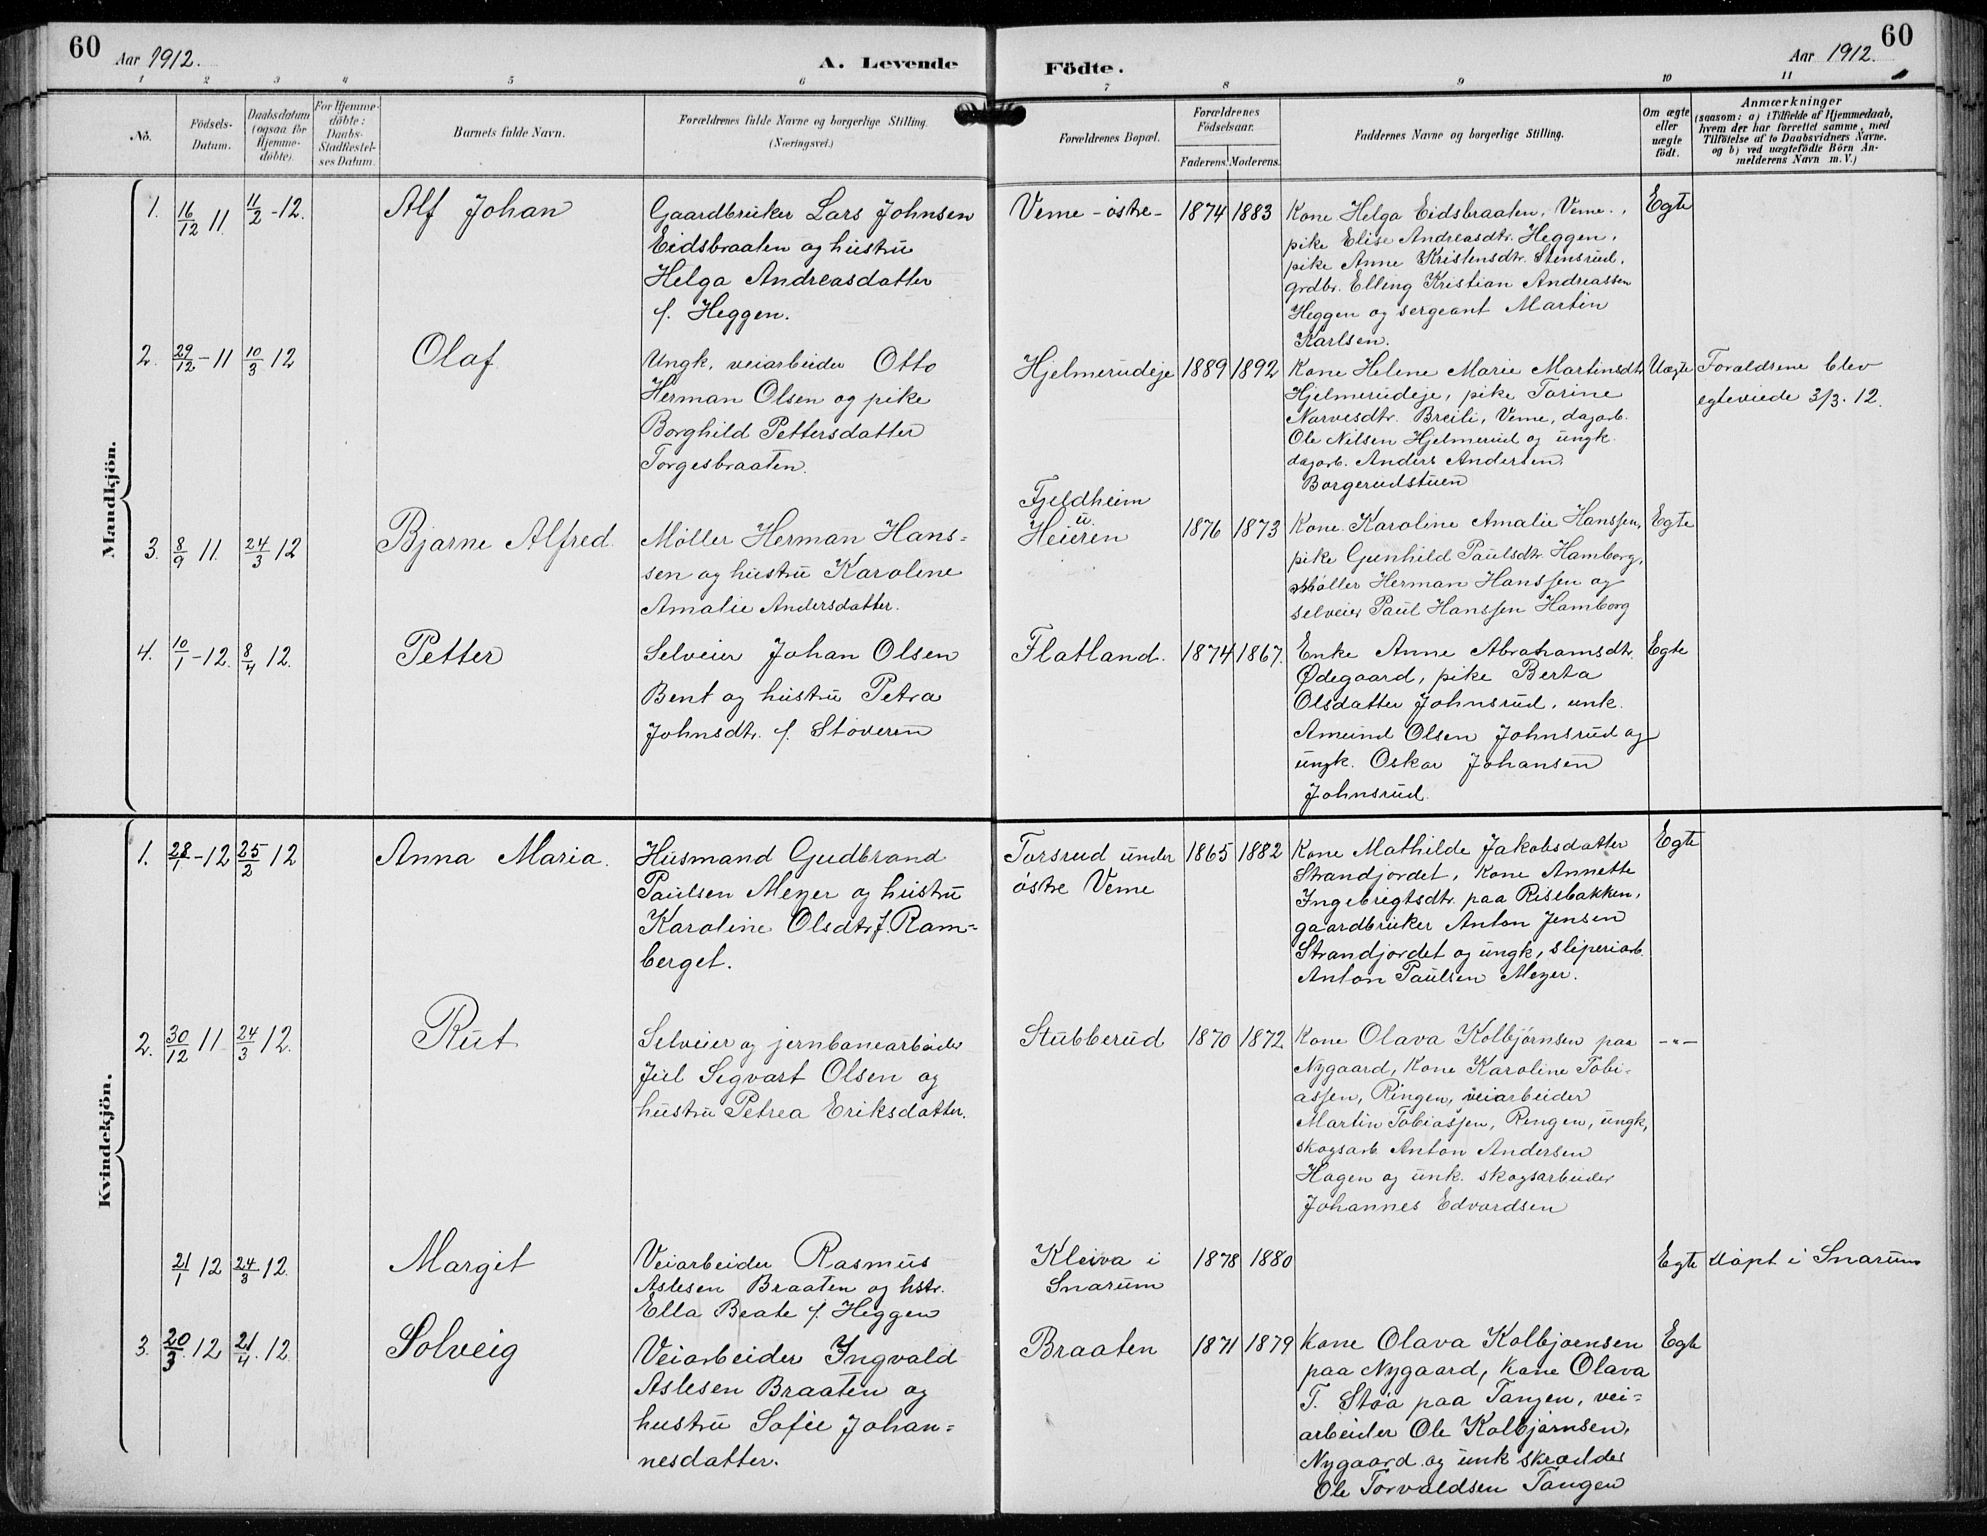 60 Aar 1912. A. Levende Födte. Aar 1912. 60
1 2 3 4 5 6 7 8 9 10 11
No. Födsels-Datum. Daabsdatum (ogsaa for Hjemme-döbte). For Hjemme-döbte: Daabs-Stadfæstel-ses Datum. Barnets fulde Navn. Forældrenes fulde Navne og borgerlige Stilling. (Næringsvei.) Forældrenes Bopæl. Forældrenes Födselsaar. Faderens. Moderens. Faddernes Navne og borgerlige Stilling. Om ægte eller uægte födt. Anmærkninger
(saasom: a) i Tilfælde af Hjemmedaab,
hvem der har forrettet samme, med
Tilföielse af to Daabsvidners Navne.
og b) ved uægtefödte Börn An-
melderens Navn m. V.)
Mandkjön.
1. 16/12 11. 11/2 -12. Alf Johan
Gaardbruker Lars Johnsen
Eidsbraaten og hustru
Helga Andreasdatter
f. Heggen.
Veme -østre- 1874 1883
Kone Helga Eidsbraaten, Veme.,
pike Elise Andreasdtr. Heggen,
pike Anne Kristensdtr. Stensrud,
grdbr. Elling Kristian Andreassen
Heggen og sergeant Martin
Karlsen.
Egte
2. 29/12 -11 10/3 12 Olaf
Ungk. veiarbeider Otto
Herman Olsen og pike
Borghild Pettersdatter
Torgesbraaten.
Hjelmerudeje 1889 1892
Kone Helene Marie Martinsdtr
Hjelmerudeje, pike Torine
Narvesdtr. Breili, Veme, dagarb.
Ole Nilsen Hjelmerud og ungk.
dagarb. Anders Andersen,
Borgerudstuen
Uægte
Forældrene blev
egteviede 3/3. 12.
3. 8/9 11. 24/3 12 Bjarne Alfred.
Møller Herman Hans=
sen og hustru Karoline
Amalie Andersdatter.
Fjeldheim
u.
Heieren 1876 1873
Kone Karoline Amalie Hanssen,
pike Gunhild Paulsdtr. Hamborg,
Møller Herman Hanssen og
selveier Paul Hanssen Hamborg
Egte
4. 10/1 -12. 8/4 12. Petter
Selveier Johan Olsen
Bent og hustru Petra
Johnsdtr. f. Støveren
Flatland. 1874 1867.
Enke Anne Abrahamsdtr.
Ødegaard, pike Berta
Olsdatter Johnsrud, unk.
Amund Olsen Johnsrud og
ungk. Oskar Johansen
Johnsrud.
Egte
Kvindekjön.
1. 28/1 -12 25/2 12 Anna Maria.
Husmand Gudbrand
Paulsen Meyer og hustru
Karoline Olsdtr f. Ram=
berget.
Torsrud under
østre Veme 1865 1882
Kone Mathilde Jakobsdatter
Strandjordet, Kone Annette
Ingebrigtsdtr. paa Risebakken,
gaardbruker Anton Jensen
Strandjordet og ungk, sliperiarb.
Anton Paulsen Meyer.
Egte
2. 30/12 11 24/3 12. Rut
Selveier og jernbanearbeider
Juel Segvart Olsen og
hustru Petrea Eriksdatter.
Stubberud 1870 1872
Kone Olava Kolbjørnsen paa
Nygaard, Kone Karoline Tobi=
assen, Ringen, veiarbeider
Martin Tobiassen, Ringen, ungk,
skogsarb Anton Andersen
Hagen og unk. skogsarbeider
Johannes Edvardsen
-"-
21/1 12 24/3 12. Margit
Veiarbeider Rasmus
Aslesen Braaten og hstr.
Ella Beate f. Heggen
Kleiva i
Snarum 1878 1880
Egte døpt i Snarum
3. 20/3. 12 21/4. 12. Solveig
Veiarbeider Ingvald
Aslesen Braaten og
hustru Sofie Johan=
nesdatter.
Braaten 1871 1879
Kone Olava Kolbjørnsen
paa Nygaard, Kone Olava
T. Støa paa Tangen, vei=
arbeider Ole Kolbjørnsen,
Nygaard og unk skrædder
Ole Torvaldsen Tangen
Egte